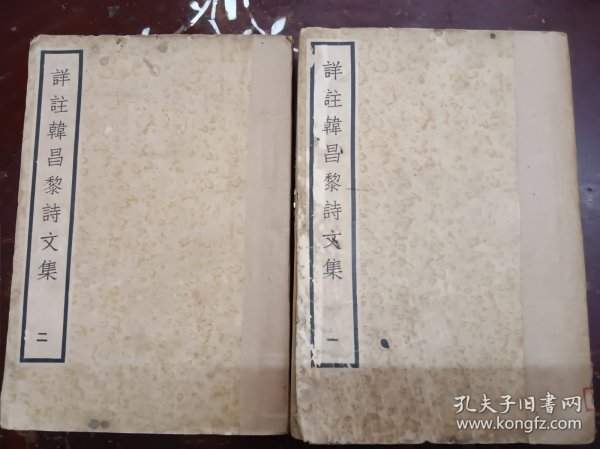 詳註韓昌黎詩文集
二
詳註韓昌黎詩文集
一
孔夫子旧书网
www.kongfz.com